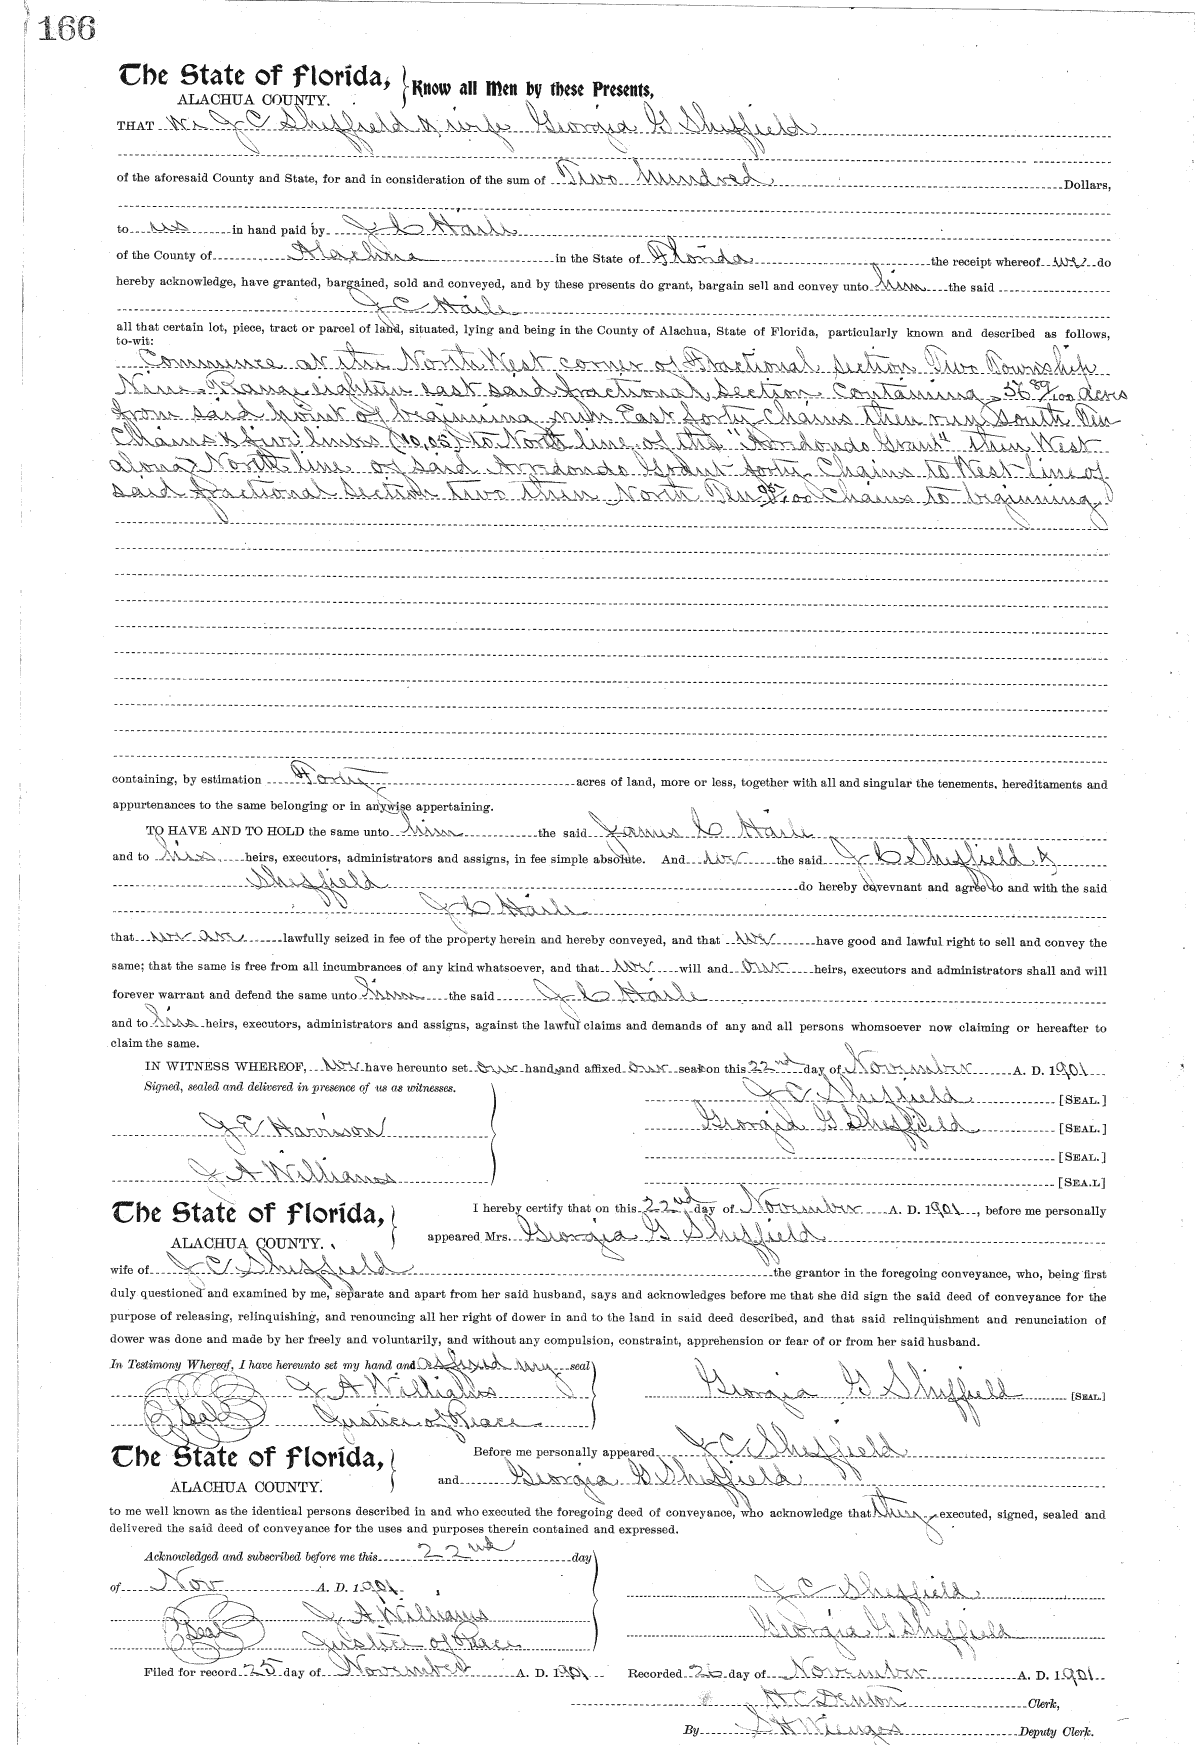 166
The State of Florida, Know all Men by these Presents,
ALACHUA COUNTY.
THAT We J C Sheffield & wife Georgia G Sheffield
of the aforesaid County and State, for and in consideration of the sum of Two Hundred Dollars,
to us in hand paid by J C Haile
of the County of Alachua in the State of Florida the receipt whereof we do
hereby acknowledge, have granted, bargained, sold and conveyed, and by these presents do grant, bargain sell and convey unto him the said
J C Haile
all that certain lot, piece, tract or parcel of land, situated, lying and being in the County of Alachua, State of Florida, particularly known and described as follows,
to-wit:
Commence at the North West corner of Fractional section Two Township
Nine Range eighteen east said fractional section containing 56 89/100 acres
from said point of beginning run East forty chains then run South Ten
Chains & five links (10,05) to North line of the "Arredondo Grant" then West
along North line of said Arredondo Grant forty Chains to West line of
said fractional section two then North Ten 05/100 Chains to beginning
containing, by estimation Forty acres of land, more or less, together with all and singular the tenements, hereditaments and
appurtenances to the same belonging or in anywise appertaining.
TO HAVE AND TO HOLD the same unto him the said James C Haile
and to his heirs, executors, administrators and assigns, in fee simple absolute. And we the said J C Sheffield &
Sheffield do hereby covevnant and agree to and with the said
J C Haile
that we are lawfully seized in fee of the property herein and hereby conveyed, and that we have good and lawful right to sell and convey the
same; that the same is free from all incumbrances of any kind whatsoever, and that we will and our heirs, executors and administrators shall and will
forever warrant and defend the same unto him the said J C Haile
and to his heirs, executors, administrators and assigns, against the lawful claims and demands of any and all persons whomsoever now claiming or hereafter to
claim the same.
IN WITNESS WHEREOF, we have hereunto set our hands and affixed our seal on this 22nd day of November A. D. 1901
Signed, sealed and delivered in presence of us as witnesses.
J C Sheffield [SEAL.]
J E Harrison Georgia G Sheffield [SEAL.]
[SEAL.]
J A Williams [SEA.L]
The State of Florida, I hereby certify that on this 22nd day of November A. D. 1901, before me personally
ALACHUA COUNTY. appeared Mrs. Georgia G Sheffield
wife of J C Sheffield the grantor in the foregoing conveyance, who, being first
duly questioned and examined by me, separate and apart from her said husband, says and acknowledges before me that she did sign the said deed of conveyance for the
purpose of releasing, relinquishing, and renouncing all her right of dower in and to the land in said deed described, and that said relinquishment and renunciation of
dower was done and made by her freely and voluntarily, and without any compulsion, constraint, apprehension or fear of or from her said husband.
In Testimony Whereof, I have hereunto set my hand and affixed my seal
J A Williams Georgia G Sheffield [SEAL.]
Seal Justice of Peace
The State of Florida, Before me personally appeared J C Sheffield
ALACHUA COUNTY. and Georgia G Sheffield
to me well known as the identical persons described in and who executed the foregoing deed of conveyance, who acknowledge that they executed, signed, sealed and
delivered the said deed of conveyance for the uses and purposes therein contained and expressed.
Acknowledged and subscribed before me this 22nd day
of Nov A. D. 1901 J C Sheffield
J A Williams Georgia G Sheffield
Seal Justice of Peace
Filed for record 25 day of November A. D. 1901 Recorded 26 day of November A. D. 1901
H C Denton Clerk,
By S H Wienges Deputy Clerk.